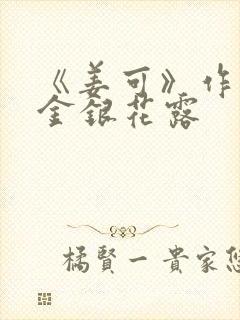 《姜可》作
金银花露
橘賢一貴家悠